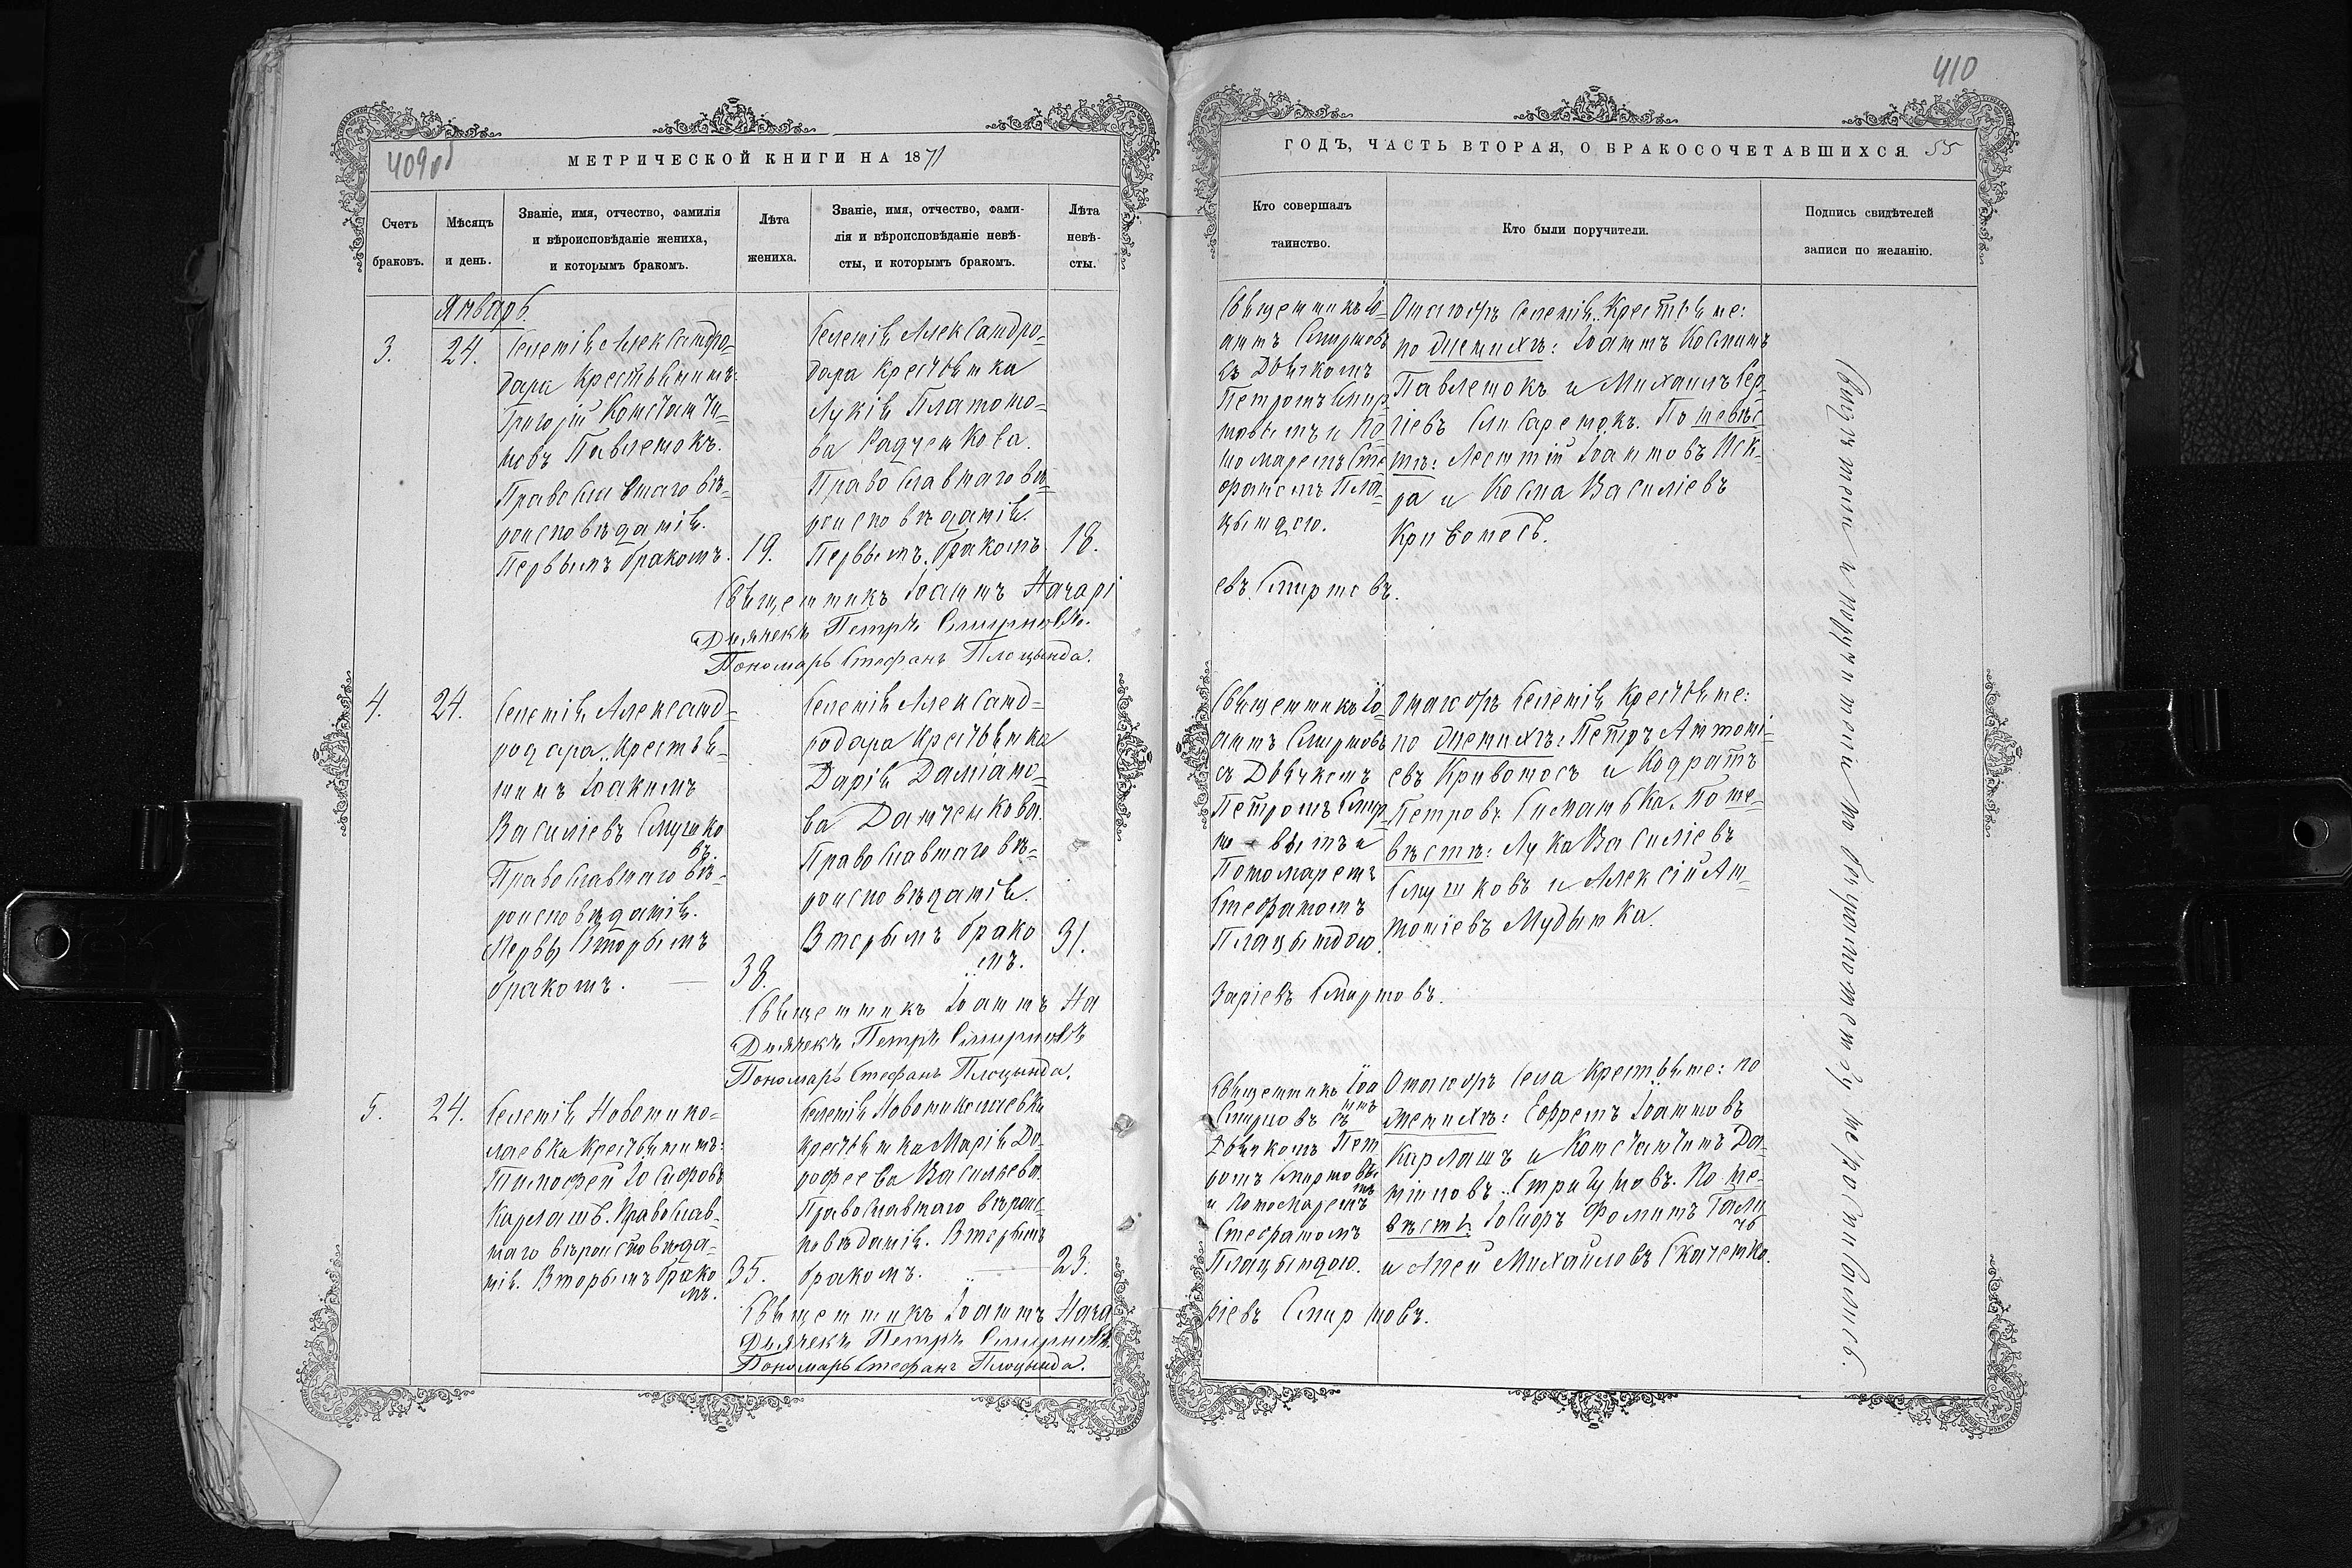 409об
МЕТРИЧЕСКОЙ КНИГИ НА 1871
Счетъ
браковъ.
Мѣсяцъ
и день.
Званіе, имя, отчество, фамилія
и вѣроисповѣданіе жениха,
и которымъ бракомъ.
Лѣта
жениха.
Званіе, имя, отчество, фами-
лія и вѣроисповѣданіе невѣ-
сты, и которымъ бракомъ.
Лѣта
невѣ-
сты.
Январь.
3.
24.
Селенія Александро-
дара Крестьянинъ
Григорій Константи-
новъ Павленокъ.
Православнаго вѣ-
роисповѣданія.
Первымъ бракомъ.
19.
Селенія Александро-
дара Крестьянка
Лукія Платоно-
ва Радченкова.
Православнаго вѣ-
роисповѣданія.
Первымъ бракомъ
18.
Священникъ Іоаннъ Назарі
Дьячекъ Петръ Смирновъ.
Пономарь Стефанъ Плоцында.
4.
24.
Селенія Александ-
родара Крестья-
нинъ Іоакимъ
Василіевъ Смушко
въ.
Православнаго вѣ-
роисповѣданія.
Первы Вторымъ
бракомъ.
38.
Селенія Александ-
родара Крестьянка
Дарія Даміано-
ва Данченкова.
Православнаго вѣ-
роисповѣданія.
Вторымъ брако
мъ.
31.
Священникъ Іоаннъ На
Дьячекъ Петръ Смирновъ
Пономарь Стефанъ Плоцында.
5.
24.
Селенія Новонико-
лаевки Крестьянинъ
Тимофей Іосифовъ
Карлашъ. Православ-
наго вѣроисповѣда-
нія. Вторымъ брако
мъ.
35.
Селенія Новониколаевки
крестьянка Марія До-
рофеева Васильева.
Православнаго вѣроис-
повѣданія. Вторымъ
бракомъ.
23.
Священникъ Іоаннъ Наза
Дьячекъ Петръ Смирновъ.
Пономарь Стефанъ Плоцында.
410
ГОДЪ, ЧАСТЬ ВТОРАЯ, О БРАКОСОЧЕТАВШИХСЯ. 55
Кто совершалъ
таинство.
Кто были поручители.
Подпись свидѣтелей
записи по желанію.
Священникъ Іо-
аннъ Смирновъ
съ Дьячкомъ
Петромъ Смир-
новымъ и По-
номаремъ Сте-
фаномъ Пла-
цындою.
Онагожъ селенія Крестьяне:
по женихѣ: Іоаннъ Косминъ
Павленокъ и Михаилъ Сер-
гіевъ Слисаренокъ. По невѣс-
тѣ: Леонтій Іоанновъ Иск-
ра и Косма Василіевъ
Кривоносъ.
евъ Смирновъ.
Священникъ Іо-
аннъ Смирновъ
съ Дьячкомъ
Петромъ Смир-
новымъ и
Пономаремъ
Стефаномъ
Плацындою.
Онагожъ селенія Крестьяне:
по женихѣ: Петръ Антоні-
евъ Кривоносъ и Кодратъ
Петровъ. По не-
вѣстѣ: Лука Василіевъ
Смушковъ и Алексій Ан-
тоніевъ Мудынка.
заріевъ Смирновъ.
Священникъ Іоа
ннъ
Смирновъ съ
Дьячкомъ Пет
ромъ Смирновы
мъ
и Пономаремъ
Стефаномъ
Плацындою.
Онагожъ села Крестьяне: по
женихѣ: Ефремъ Іоанновъ
Карлашъ и Константинъ Да-
міановъ Стригуновъ. По не-
вѣстѣ Іосифъ Фоминъ Гали
чъ
и Михайловъ Скаченко.
ріевъ Смирновъ.
Свидѣтели и поручители по безграмотству неросписались.